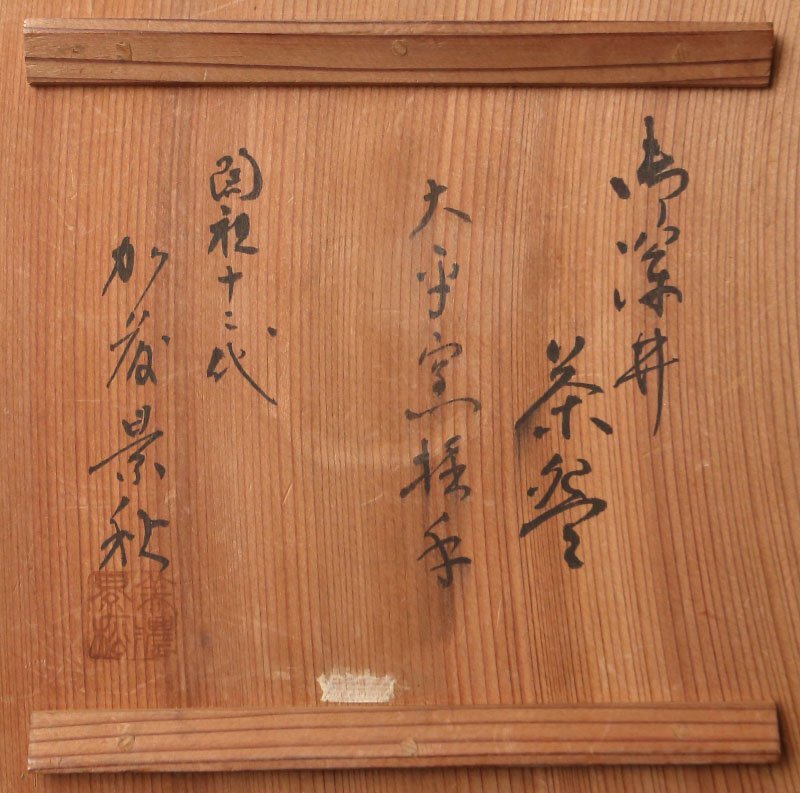 御深井
茶盌
大平窯手
陶祖十二代
加藤景秋